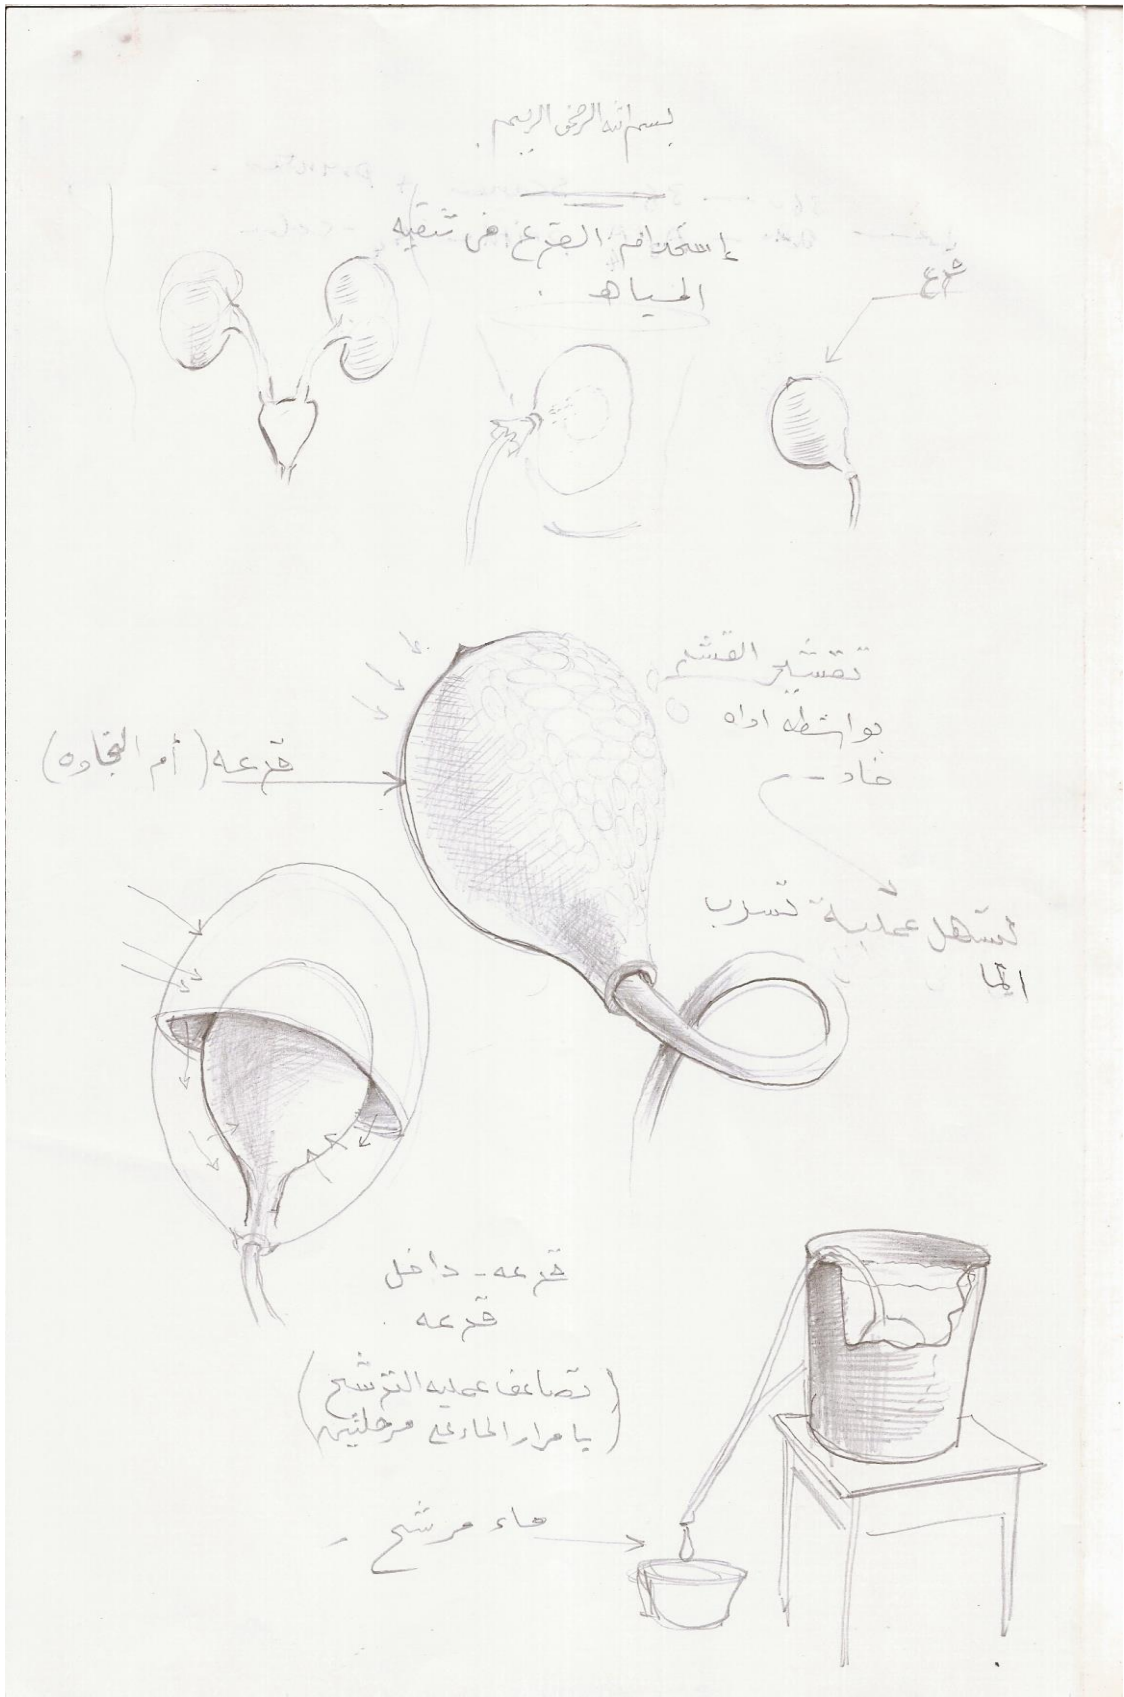 بسم الله الرحمن الرحيم
إستخدام القرع فى تنقيه
المياه
قرع
تقشير القشر
بواشطه اداه
حاد
قرعه (أم البخاوه)
لتسهل عملية تسرب
الما
قرعه - داخل
قرعه
(تضاعف عمليه الترشح
بامرار الماء على مرحلتين)
ماء مرشح